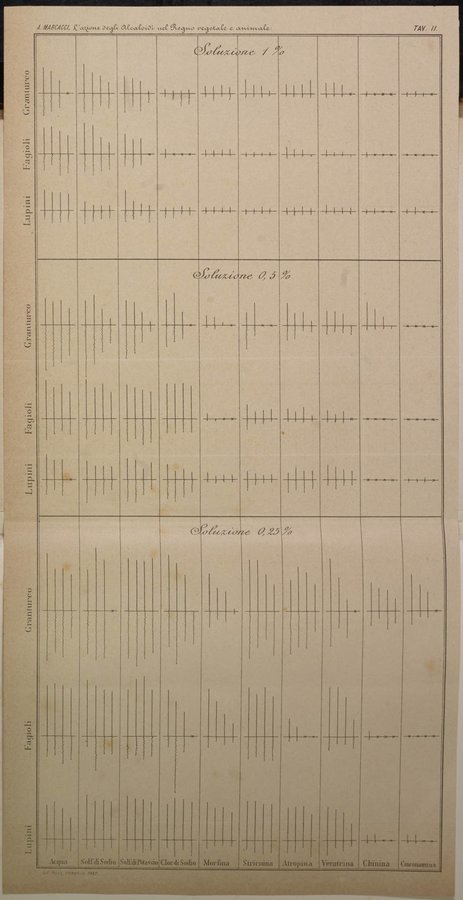 A. MARCACCI, L'azione degli Alcaloidi nel Regno vegetale e animale. TAV. II.
Soluzione 1 %
Granturco
Fagioli
Lupini
Soluzione 0,5 %
Granturco
Fagioli
Lupini
Soluzione 0,25 %
Granturco
Fagioli
Lupini
Acqua Solf. di Sodio Solf. di Potassio Clor. di Sodio Morfina Stricnina Atropina Veratrina Chinina Cinconamina